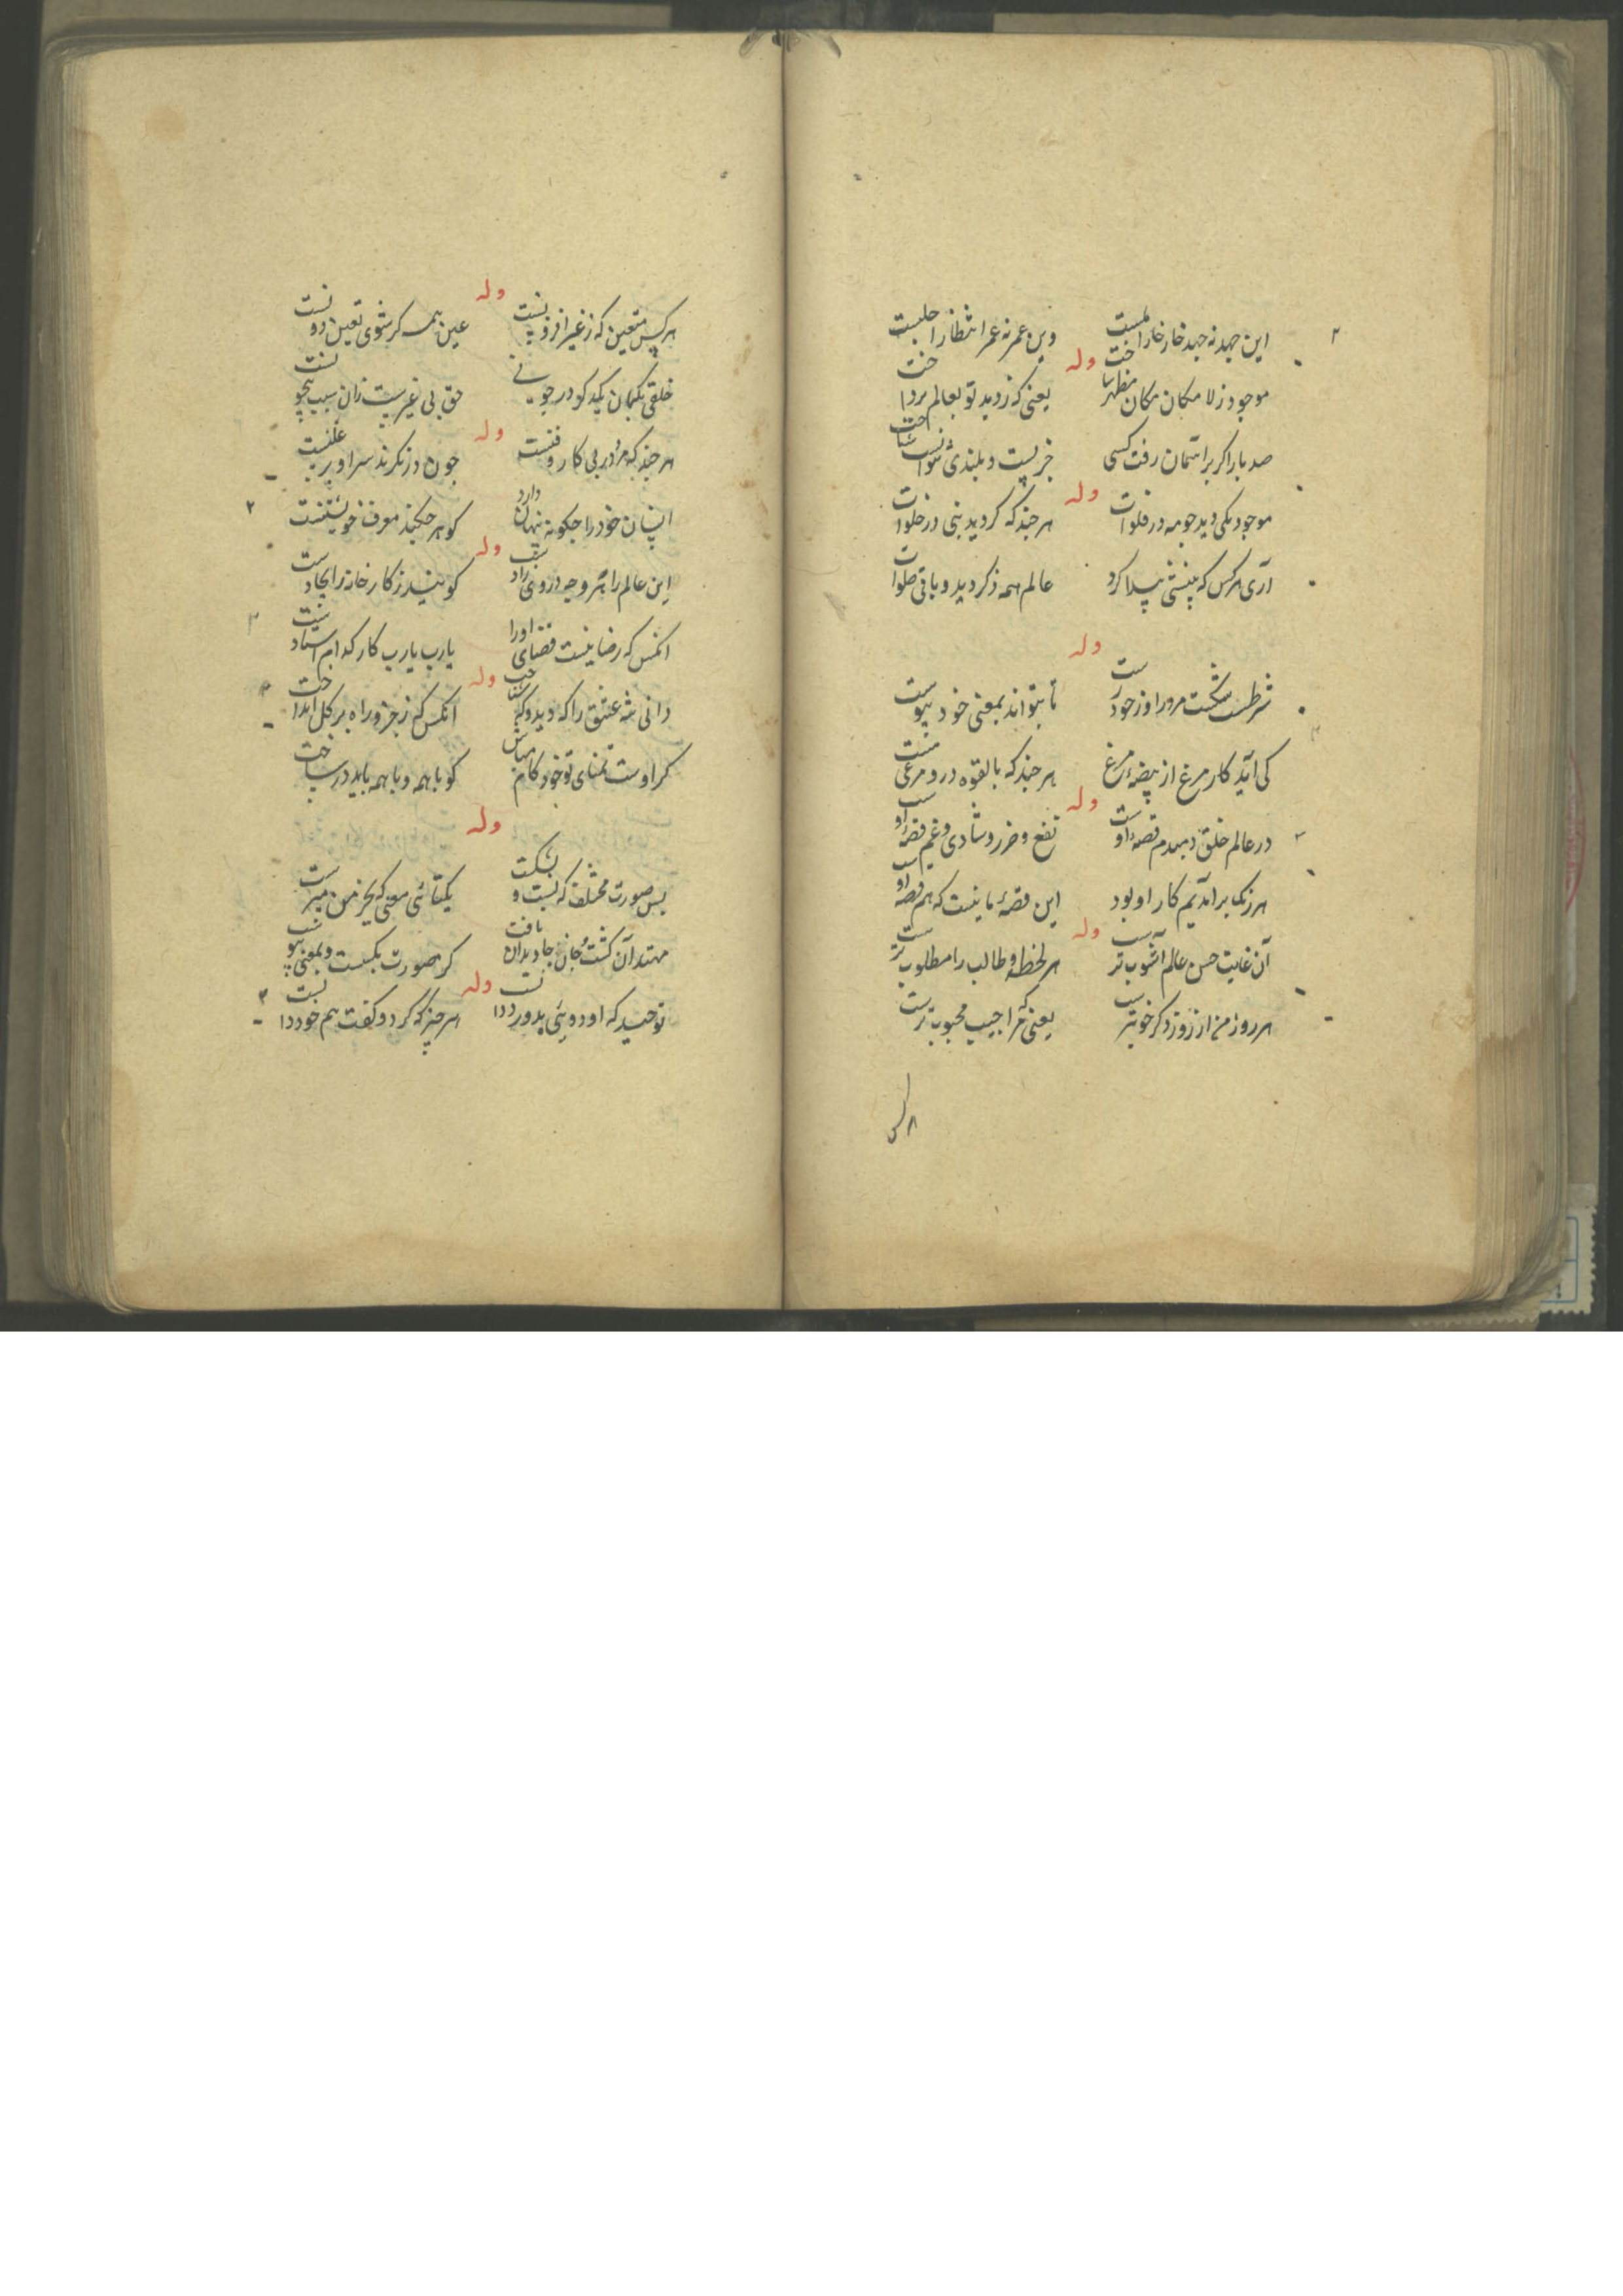 این جهد نه جهد خار خار املست
وین عمر نه عمر انتظار اجلست
وله
موجود ز لا مکان مکان مظهر ساخت
یعنی که ز دید تو بعالم پرداخت
صد بار اکر بر آسمان رفت کسی
جز پست و بلندی نتوانست شناخت
وله
موجود یکی دید جو مه در فلوات
هر جند که کردید بنی در خلوات
آری هر کس که بینشی پیدا کرد
عالم همه ذکر دید و باقی صلوات
وله
شرطست شکست مرد را و ز خود رست
تا بتواند بمعنی خود پیوست
کی آید کار مرغ از بیضهٔ مرغ
هر جند که بالقوه درو مرغی هست
وله
در عالم خلق دمبدم قصهٔ اوست
نفع و ضرر و شادی و غم قصهٔ اوست
هر رنک برآمدیم کار او بود
این قصهٔ ما نیست که هم قصهٔ اوست
وله
آن غایت حسن عالم آشوب ترست
هر لحظه و طالب را مطلوب ترست
هر روز من از روز دکر خوبترست
یعنی که مرا حبیب محبوب ترست
وله
هر کس متعین که ز غیر افزونیست
عین همه کر شوی تعین دو نیست
خلقی بکمان یکدکر در جویی
حق بی غیریست زان سبب بیجونست
وله
هر جند که مزدور پی کار و فنست
جون دزد نکرند سر او بر علفست
انسان خود را جکونه پنهان دارد
کو هر جکند معرف خویشتنست
وله
این عالم را بهر وجه در وی راد
کو بیند ز کارخانهٔ ایجادست
آنکس که رضا نیست قضای او را
یا رب یا رب کار کدام استاد نیست
وله
دانی شه عشق را که دید و که شناخت
آنکس که ز جزو راه بر کل انداخت
کر اوست تمنای تو خود کام مباش
کو با همه و با همه باید در ساخت
وله
بس صورت مختلف که بست و بشکست
یکتائی معنی که یخزمن میرست
مهتد آن کشت و جان جاویدان یافت
کر صورت بکسست و بمعنی پیوست
وله
توحید که او دوئی پدور ددا نست
هر جیز که کرد و کفت هم خود دانست